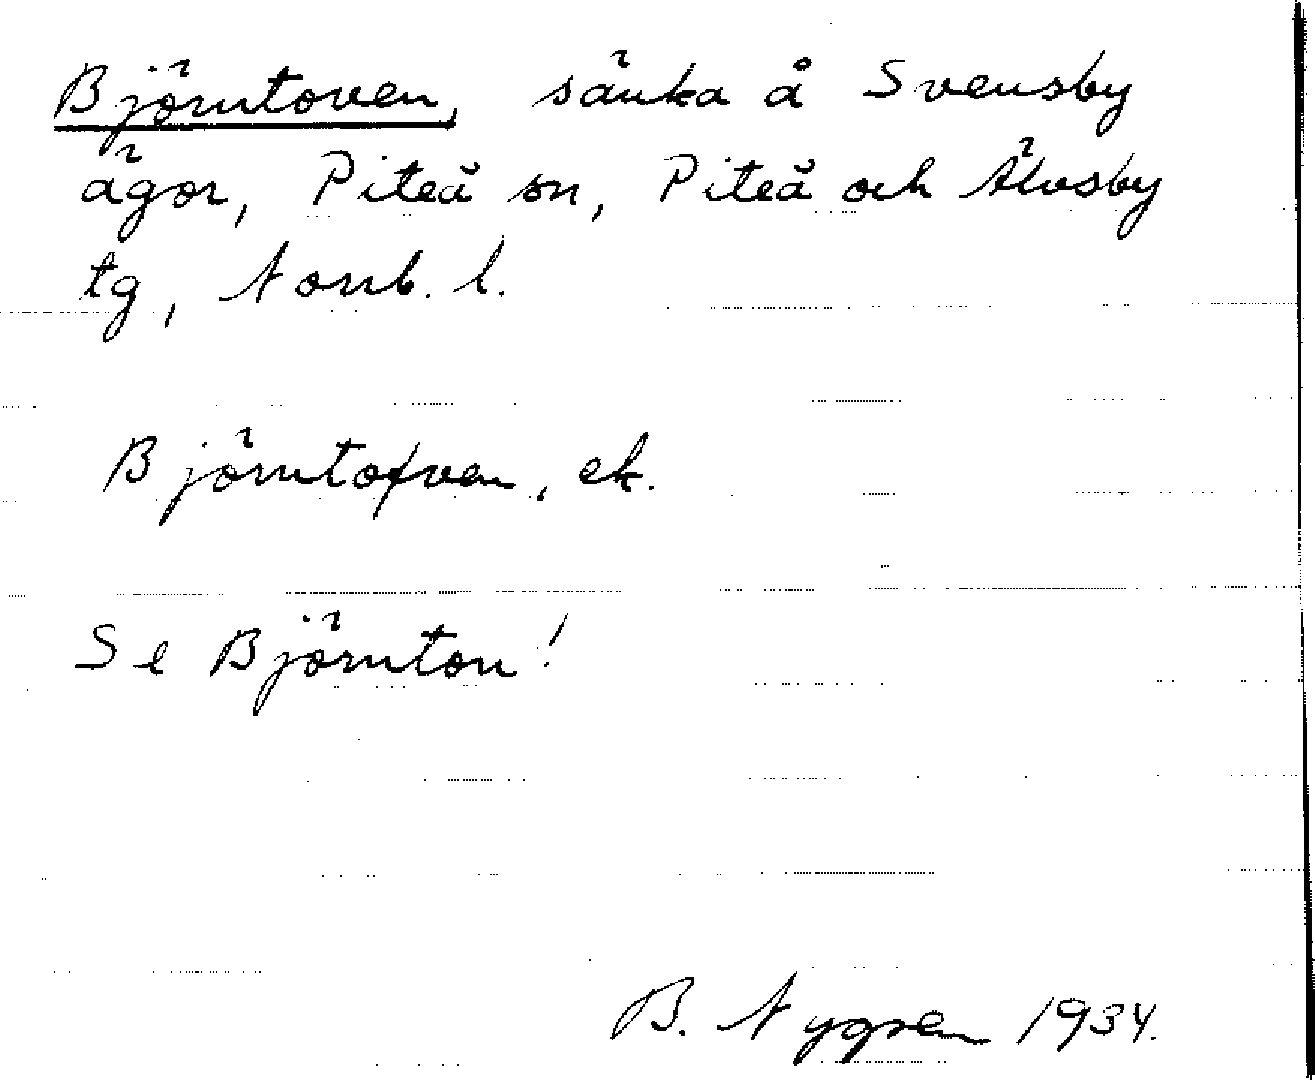 Björntoven, sänka å Svensby
ägor, Piteå sn, Piteå och Älvsby
tg, Norrb. l.
Björntofven, ek.
Se Björnton!
B. Nygren 1934.